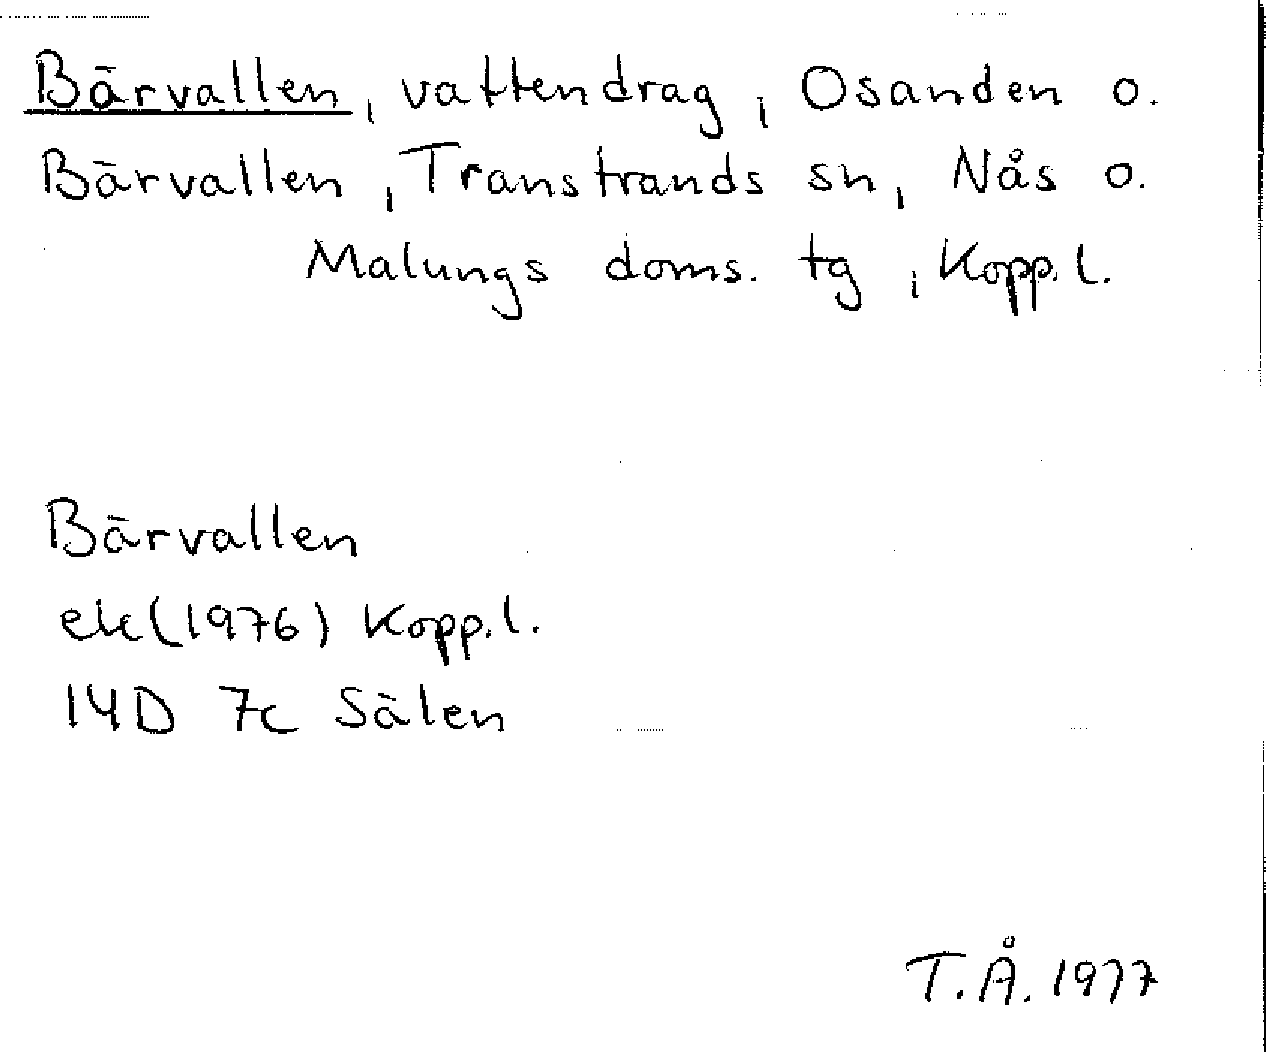 Bärvallen, vattendrag, Osanden o.
Bärvallen, Transtrands sn, Nås o.
Malungs doms. tg, Kopp. l.
Bärvallen
ek (1976) Kopp. l.
14D 7c Sälen
T.Å. 1977